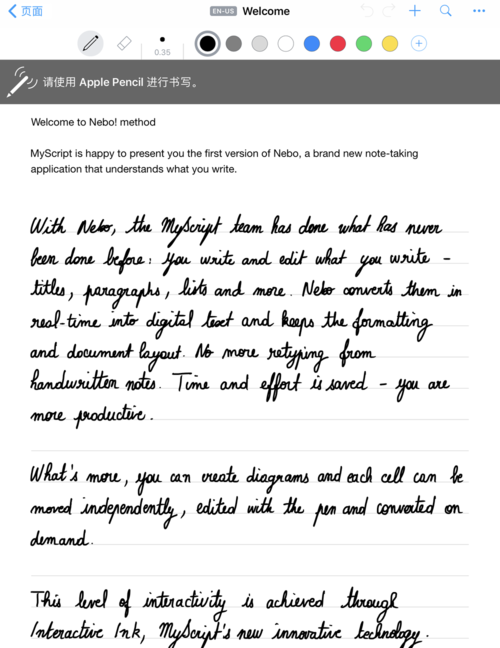 页面
EN-US Welcome
0.35
请使用 Apple Pencil 进行书写。
Welcome to Nebo! method
MyScript is happy to present you the first version of Nebo, a brand new note-taking
application that understands what you write.
With Nebo, the MyScript team has done what has never
been done before: you write and edit what you write -
titles, paragraphs, lists and more. Nebo converts them in
real-time into digital text and keeps the formatting
and document layout. No more retyping from
handwritten notes. Time and effort is saved - you are
more productive.
What's more, you can create diagrams and each cell can be
moved independently, edited with the pen and converted on
demand.
This level of interactivity is achieved through
Interactive Ink, MyScript's new innovative technology.